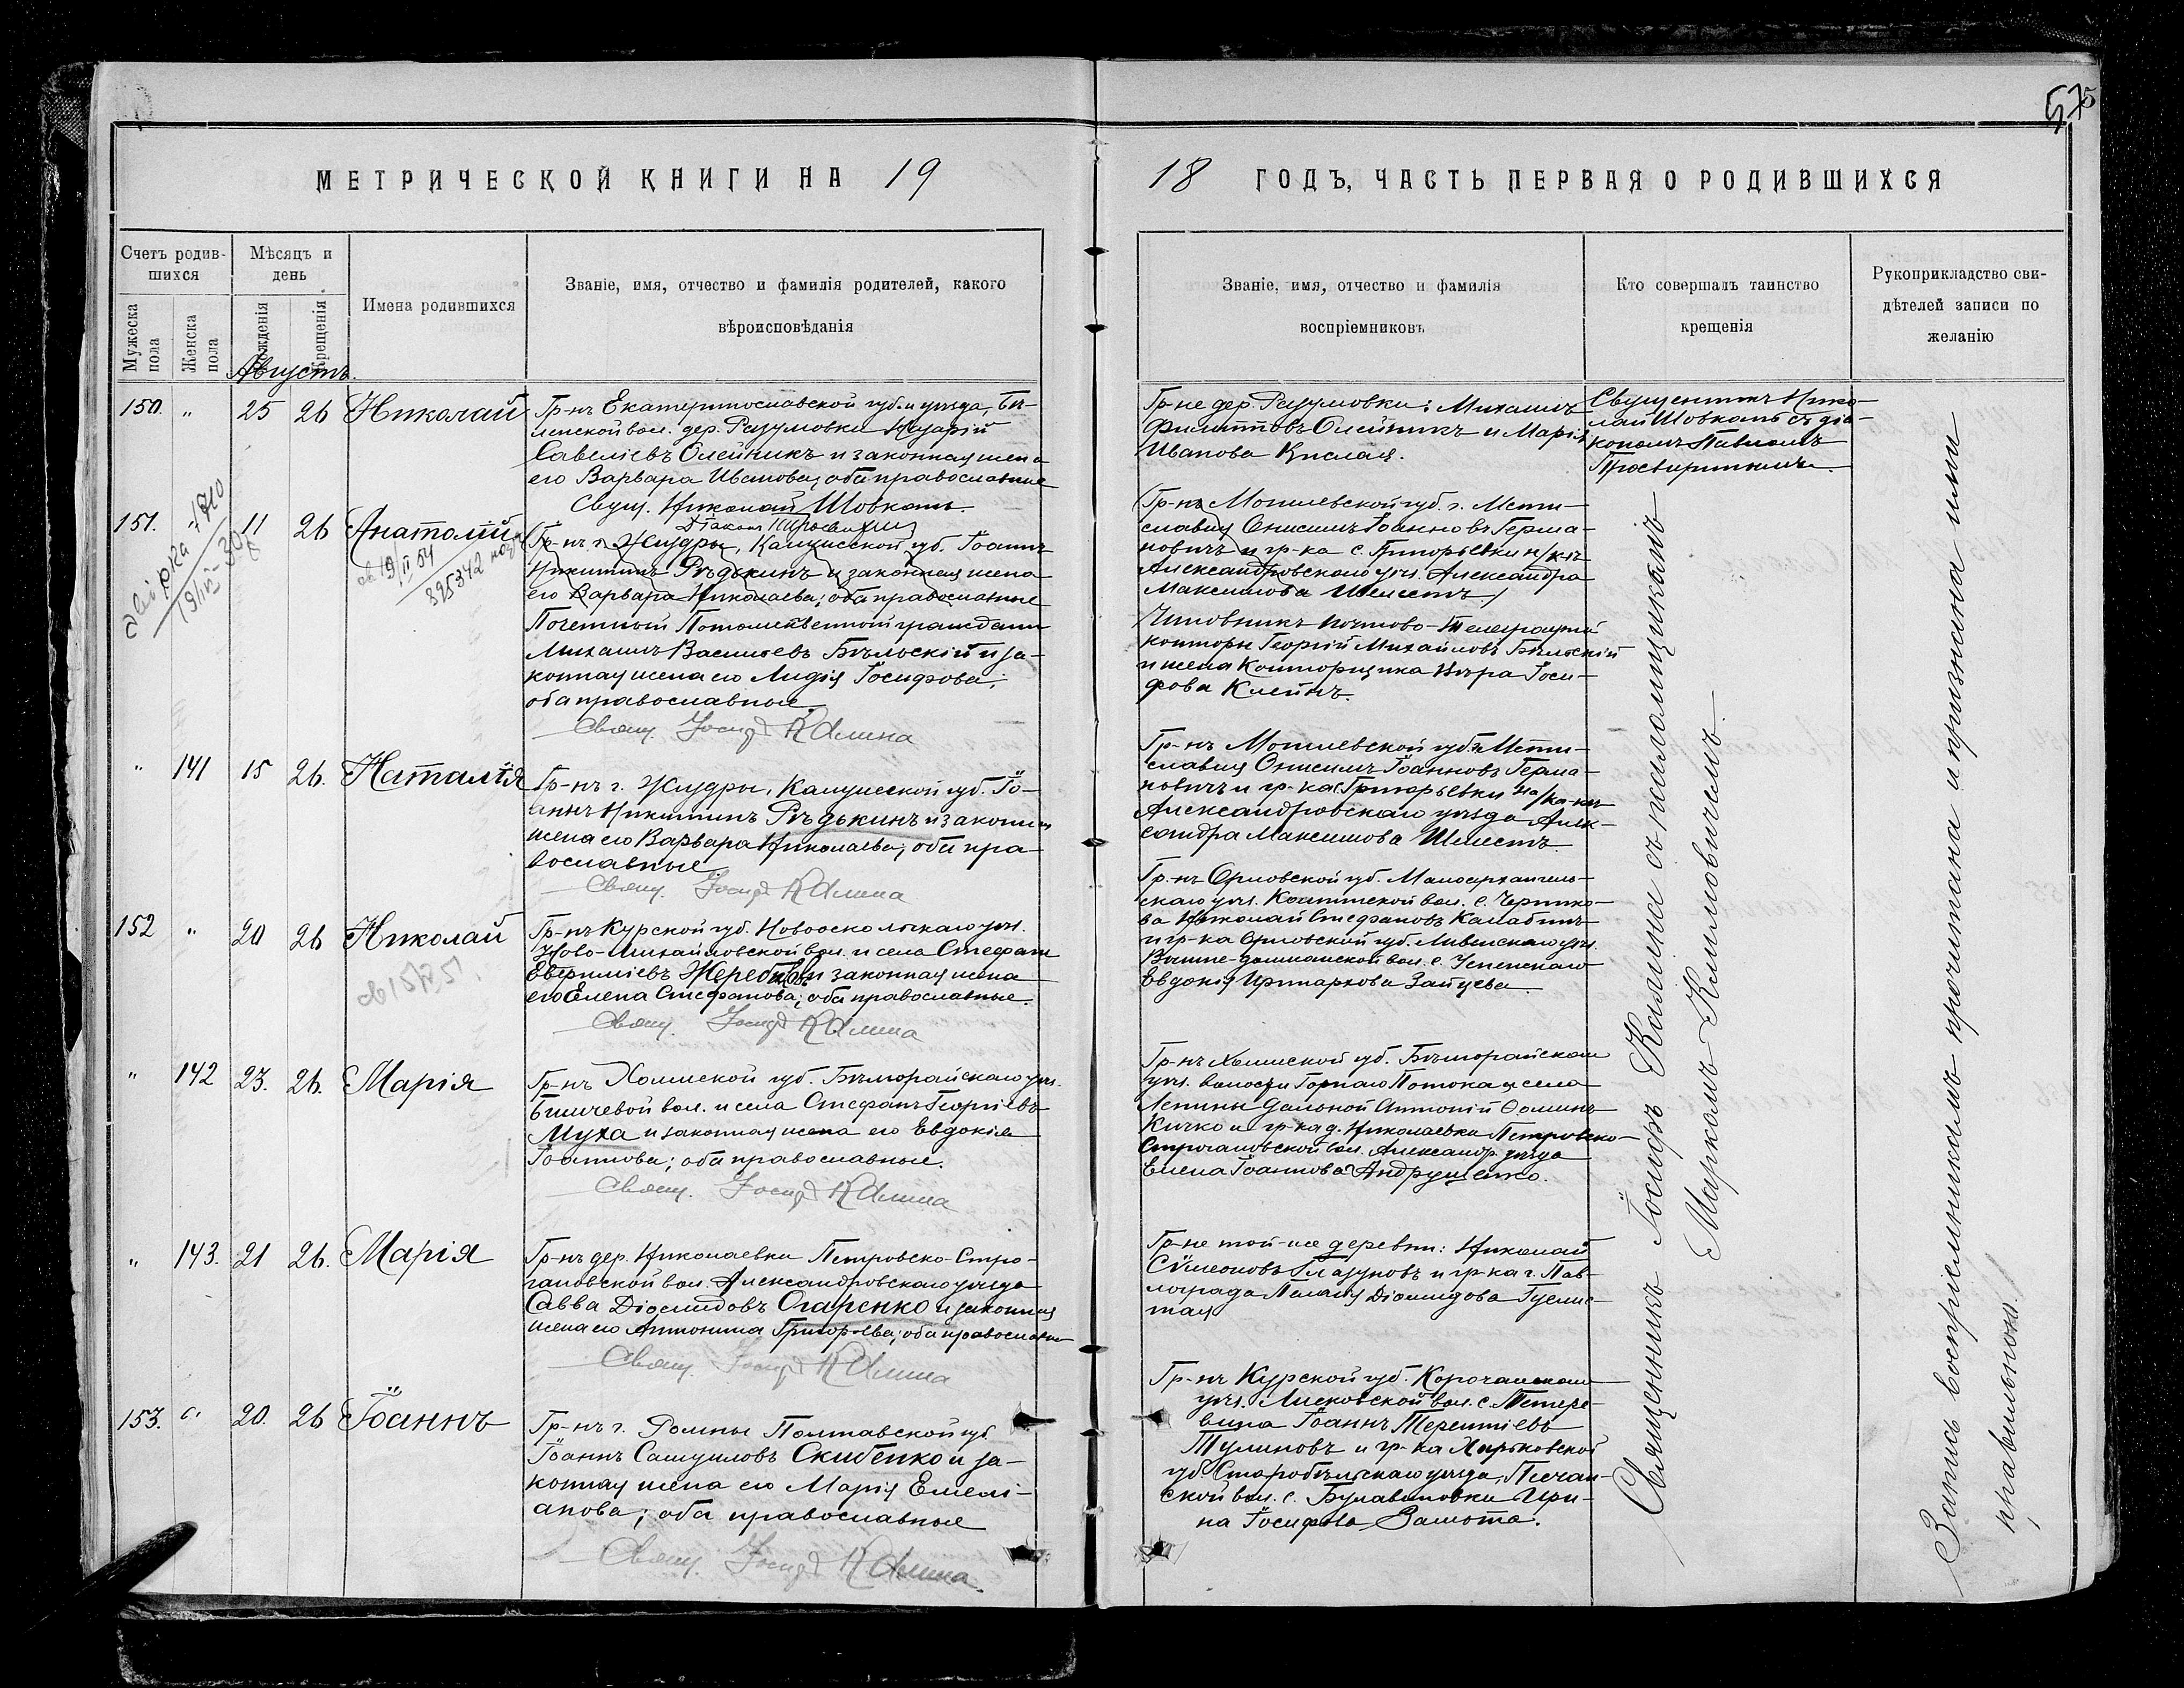 575
МЕТРИЧЕСКОЙ КНИГИ НА 19
18 ГОДЪ, ЧАСТЬ ПЕРВАЯ О РОДИВШИХСЯ
Счетъ родив-
шихся
Мужеска пола
Женска пола
Мѣсяцъ и
день
рожденія
крещенія
Имена родившихся
Званіе, имя, отчество и фамилія родителей, какого
вѣроисповѣданія
Званіе, имя, отчество и фамилія
воспріемниковъ
Кто совершалъ таинство
крещенія
Рукоприкладство сви-
дѣтелей записи по
желанію
Августъ.
150. „ 25 26 Николай
Гр-нъ Екатеринославской губ. и уѣзда, Бѣ-
ленской вол. дер. Разумовки
Савеліевъ Олейникъ и законная жена
его Варвара Иванова, оба православные
Свящ. Николай Шовкань
Гр-не дер. Разумовки: Михаилъ
Филипповъ Олейникъ и Марія
Иванова Кислая.
Священникъ Нико-
лай Шовкань съ діа-
кономъ Павломъ
151. 11 26 Анатолій
19/II 54
895342
Гр-нъ г. Жиздры, Калужской губ. Іоаннъ
Никитинъ Рѣдькинъ и законная жена
его Варвара Николаева; оба православные
Почетный Потомственный гражданинъ
Михаилъ Васильевъ Бѣльскій и за-
конная жена его Лидія Іосифова;
оба православные.
Свящ. Іосифъ Калина
(Гр-нъ Могилевской губ. г. Мсти-
славля Онисимъ Іоанновъ Герма-
новичъ и гр-ка с. Григорьевки
Александровскаго уѣз. Александра
Максимова Шелестъ.)
Чиновникъ почтово-телеграфной
конторы Георгій Михайловъ Бѣльскій
и жена конторщика Вѣра Іоси-
фова Клейнъ.
„ 141 15 26. Наталія
Гр-нъ г. Жиздры, Калужской губ. Іо-
аннъ Никитинъ Рѣдькинъ и законная
жена его Варвара Николаева; оба пра-
вославные
Свящ. Іосифъ Калина
Гр-нъ Могилевской губ. г. Мсти-
славля Онисимъ Іоанновъ Герма-
новичъ и гр-ка с. Григорьевки
Александровскаго уѣзда Алек-
сандра Максимова Шелестъ.
152 „ 20 26 Николай
Гр-нъ Курской губ. Новооскольскаго уѣз.
Ново-Михайловской вол. и села Стефанъ
Евфиміевъ и законная жена
его Елена Стефанова; оба православные.
Свящ. Іосифъ Калина
Гр-нъ Орловской губ. Малоархангель-
скаго уѣз. вол. с.
ва Николай Стефановъ Калабинъ
и гр-ка Орловской губ. Ливенскаго уѣз.
вол. с. Успенскаго
Евдокія Зайцева.
„ 142 23. 26. Марія
Гр-нъ Холмской губ. Бѣлгорайскаго уѣз.
вол. и села Стефанъ Георгіевъ
Муха и законная жена его Евдокія
Іоаннова; оба православные.
Свящ. Іосифъ Калина
Гр-нъ Холмской губ. Бѣлгорайскаго
уѣз. волости Горнаго Потока и села
Антоній Ѳоминъ
Кичко и гр-ка д. Николаевки Петровско-
Строгановской вол. Александр. уѣзда
Елена Іоаннова Андрущенко.
„ 143. 21 26. Марія
Гр-нъ дер. Николаевки Петровско-Стро-
гановской вол. Александровскаго уѣзда
Савва Діомидовъ Огаренко и законная
жена его Антонина Григорьева; оба православные
Свящ. Іосифъ Калина
Гр-не той-же деревни: Николай
Сѵмеоновъ Глазуновъ и гр-ка г. Пав-
лограда Пелагія Діомидова
153. „ 20. 26 Іоаннъ
Гр-нъ г. Ромны Полтавской губ.
Іоаннъ Самуиловъ Скибенко и за-
конная жена его Марія Емелі-
анова; оба православные
Свящ. Іосифъ Калина
Гр-нъ Курской губ. Корочанскаго
уѣз. вол. с.
Іоаннъ Терентіевъ
Тулиновъ и гр-ка Харьковской
губ. Старобѣльскаго уѣзда, Песчан-
ской вол. с. Булавиновки Ири-
на Іосифова Замота.
Священникъ Іосифъ Калина съ псаломщикомъ
Маркомъ Климовичемъ.
Запись воспріемникамъ прочитана и признана ими
правильною.